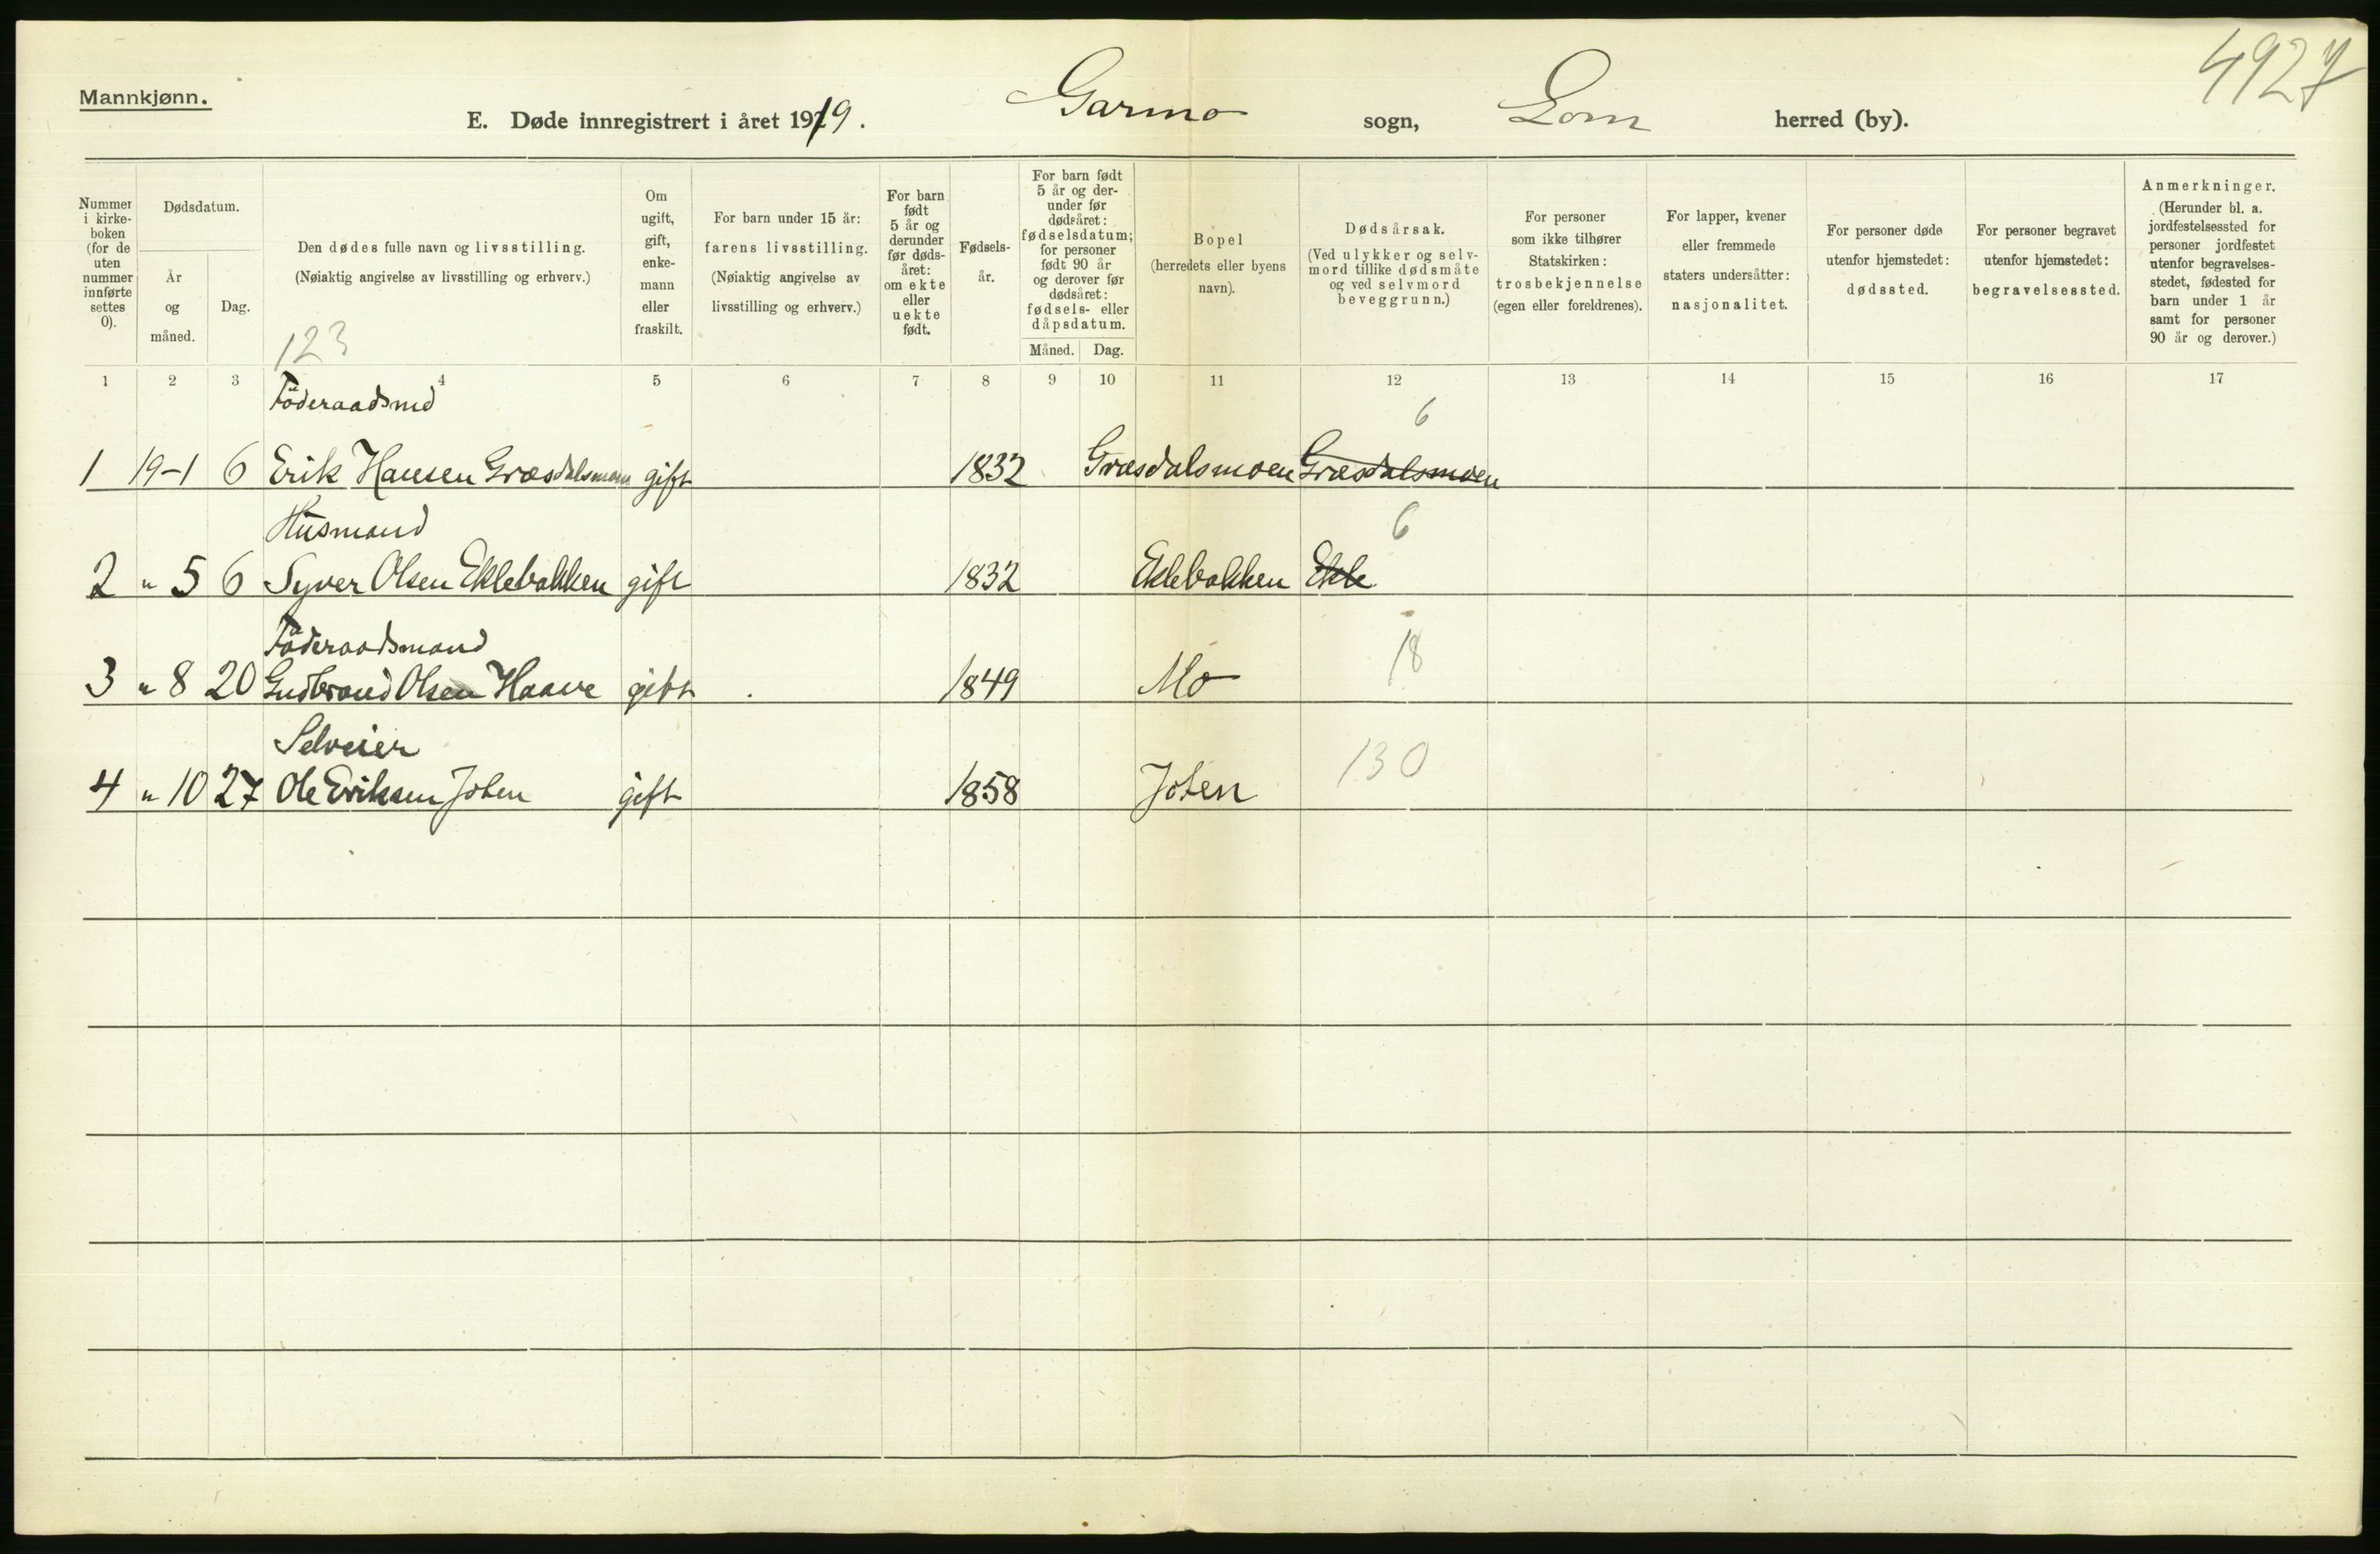 4927
Mannkjønn.
E. Døde innregistrert i året 1919. Garmo sogn, Lom herred (by).
Nummer i kirke-boken (for de uten nummer innførte settes 0).
Dødsdatum.
År og måned.
Dag.
Den dødes fulle navn og livsstilling.
(Nøiaktig angivelse av livsstilling og erhverv.)
123
Om ugift, gift, enke-mann eller fraskilt.
For barn under 15 år: farens livsstilling.
(Nøiaktig angivelse av livsstilling og erhverv.)
For barn født 5 år og derunder før døds-året: om ekte eller uekte født.
Fødsels-år.
For barn født 5 år og der-under før dødsåret: fødselsdatum; for personer født 90 år og derover før dødsåret: fødsels- eller dåpsdatum.
Måned. Dag.
Bopel
(herredets eller byens navn).
Dødsårsak.
(Ved ulykker og selv-mord tillike dødsmåte og ved selvmord beveggrunn.)
For personer som ikke tilhører Statskirken: trosbekjennelse (egen eller foreldrenes).
For lapper, kvener eller fremmede staters undersåtter: nasjonalitet.
For personer døde utenfor hjemstedet: dødssted.
For personer begravet utenfor hjemstedet: begravelsessted.
Anmerkninger.
(Herunder bl. a. jordfestelsessted for personer jordfestet utenfor begravelses-stedet, fødested for barn under 1 år samt for personer 90 år og derover.)
1 2 3 4 5 6 7 8 9 10 11 12 13 14 15 16 17
Föderaadsmd 6
1 19-1 6 Erik Hansen Græsdalsmoen gift 1832 Græsdalsmoen Græsdalsmoen
Husmand 6
2 " 5 6 Syver Olsen Eklebakken gift 1832 Eklebakken Ekle
Föderaadsmand 18
3 " 8 20 Gudbrand Olsen Haave gift 1849 Mo
Selveier 130
4 " 10 27 Ole Eriksen Joten gift 1858 Joten